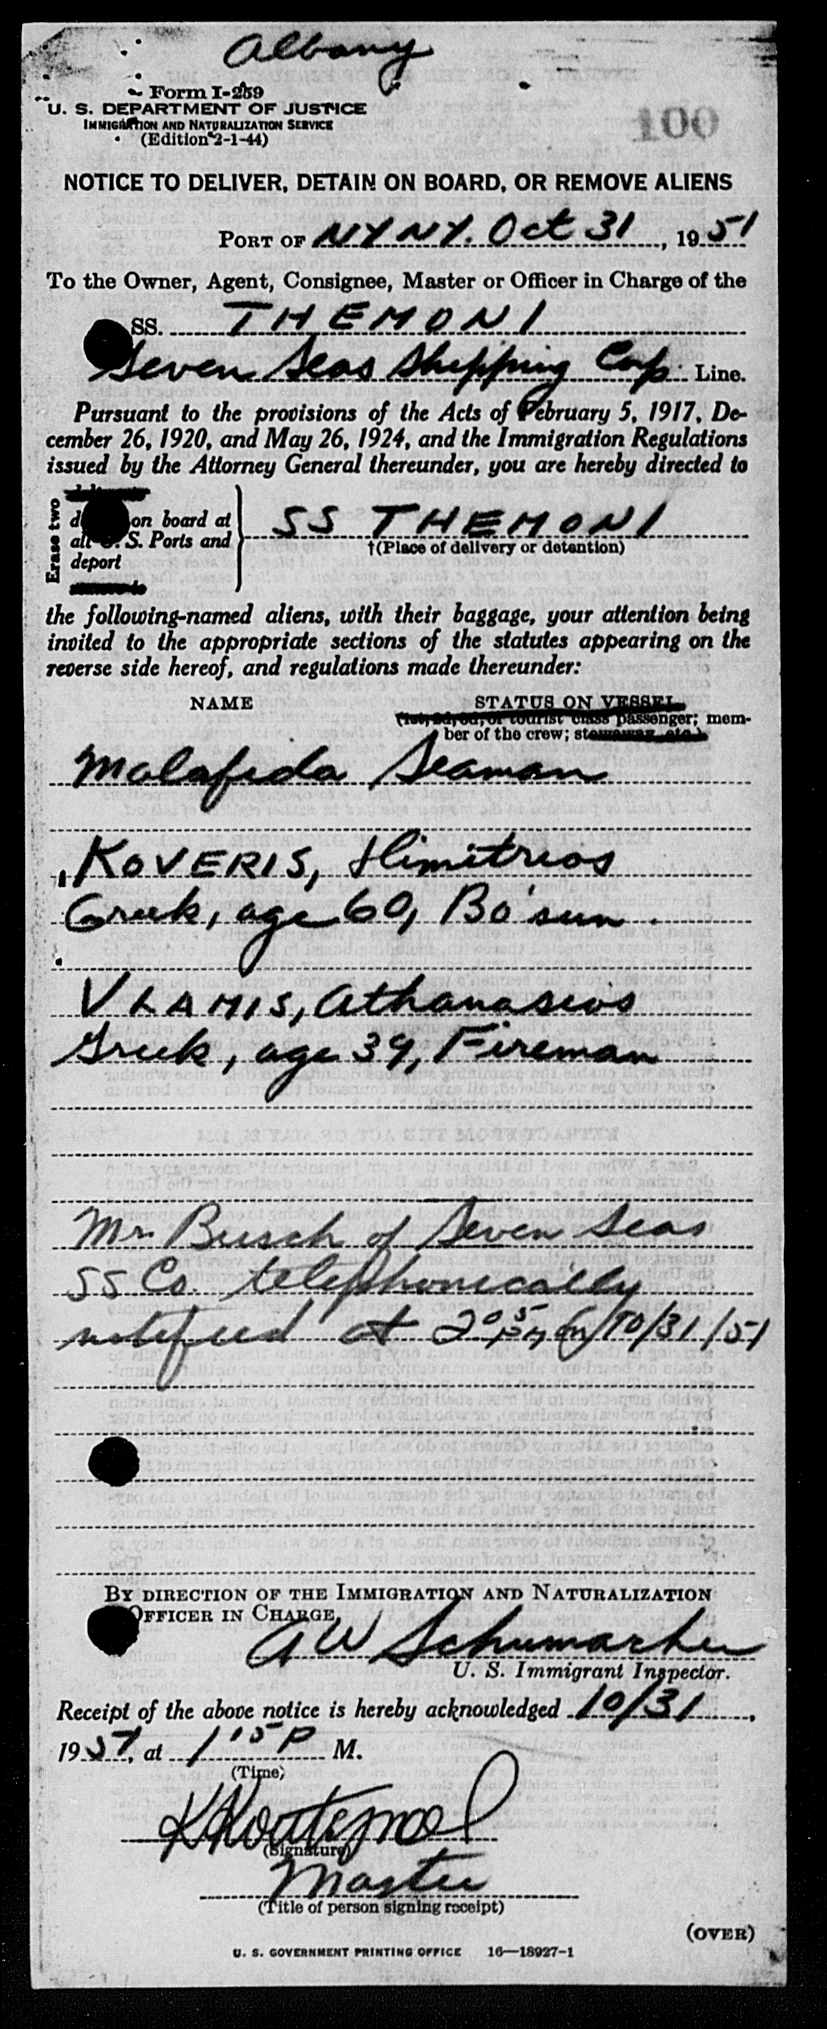 Albany
Form I-259
U. S. DEPARTMENT OF JUSTICE
IMMIGRATION AND NATURALIZATION SERVICE
(Edition 2-1-44)
100
NOTICE TO DELIVER, DETAIN ON BOARD, OR REMOVE ALIENS
PORT OF NY NY. Oct 31, 1951
To the Owner, Agent, Consignee, Master or Officer in Charge of the
SS. THEMONI
Seven Seas Shipping Corp. Line.
Pursuant to the provisions of the Acts of February 5, 1917, De-
cember 26, 1920, and May 26, 1924, and the Immigration Regulations
issued by the Attorney General thereunder, you are hereby directed to
Erase two
on board at
all S. Ports and
deport
SS THEMONI
†(Place of delivery or detention)
the following-named aliens, with their baggage, your attention being
invited to the appropriate sections of the statutes appearing on the
reverse side hereof, and regulations made thereunder:
NAME STATUS ON VESSEL
(1st, 2d, 3d, or tourist class passenger; mem-
ber of the crew; stowaway, etc.)
Malafida Seaman
KOVERIS, Dimitrios
Greek, age 60, Bo'sun.
VLAMIS, Athanasios
Greek, age 39, Fireman
Mr. Busch of Seven Seas
SS Co. telephonically
notified at 2 05 PM 10/31/51
BY DIRECTION OF THE IMMIGRATION AND NATURALIZATION
OFFICER IN CHARGE
A W Schumacher
U. S. Immigrant Inspector.
Receipt of the above notice is hereby acknowledged 10/31,
1951, at 1 15 P M.
(Time)
(Signature)
Master
(Title of person signing receipt)
(OVER)
U. S. GOVERNMENT PRINTING OFFICE 16—18927-1